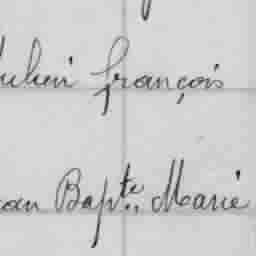 ulien françois
ean Bapte. Marie